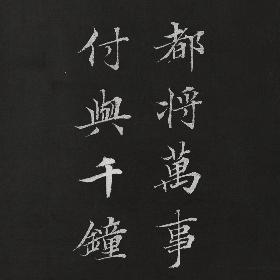 都将萬事
付與千鐘